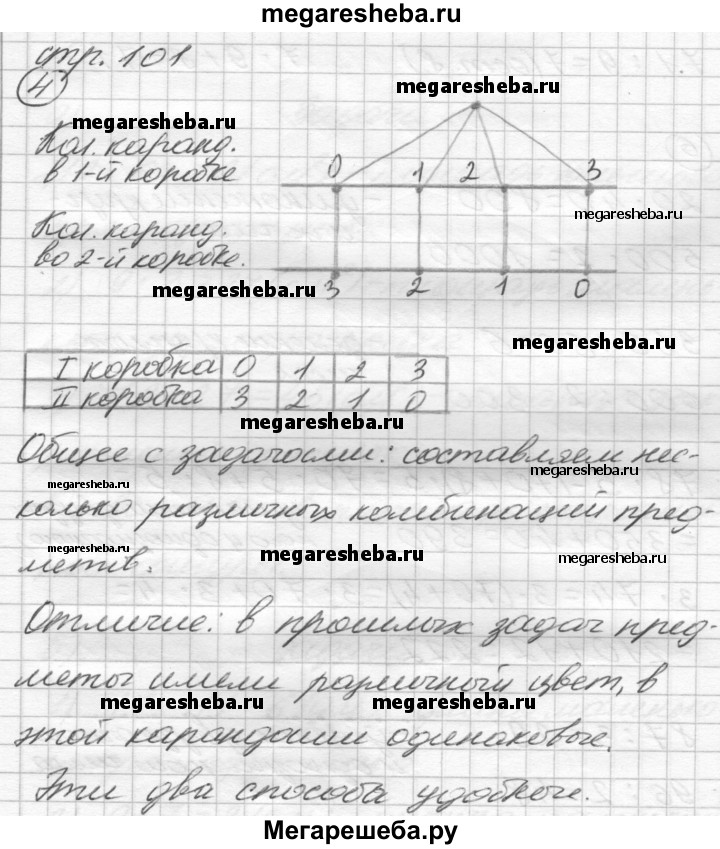 megaresheba.ru
стр. 101
4
megaresheba.ru
megaresheba.ru
Кол. каранд.
в 1-й коробке
0 1 2 3
megaresheba.ru
Кол. каранд.
во 2-й коробке.
megaresheba.ru
3 2 1 0
megaresheba.ru
I коробка 0 1 2 3
II коробка 3 2 1 0
megaresheba.ru
Общее с задачами: составляем нес-
megaresheba.ru
megaresheba.ru
колько различных комбинаций пред-
megaresheba.ru megaresheba.ru megaresheba.ru
метов.
Отличие: в прошлых задач пред-
меты имели различный цвет, в
megaresheba.ru megaresheba.ru
этой карандаши одинаковые.
Эти два способа удобные.
Мегарешеба.ру